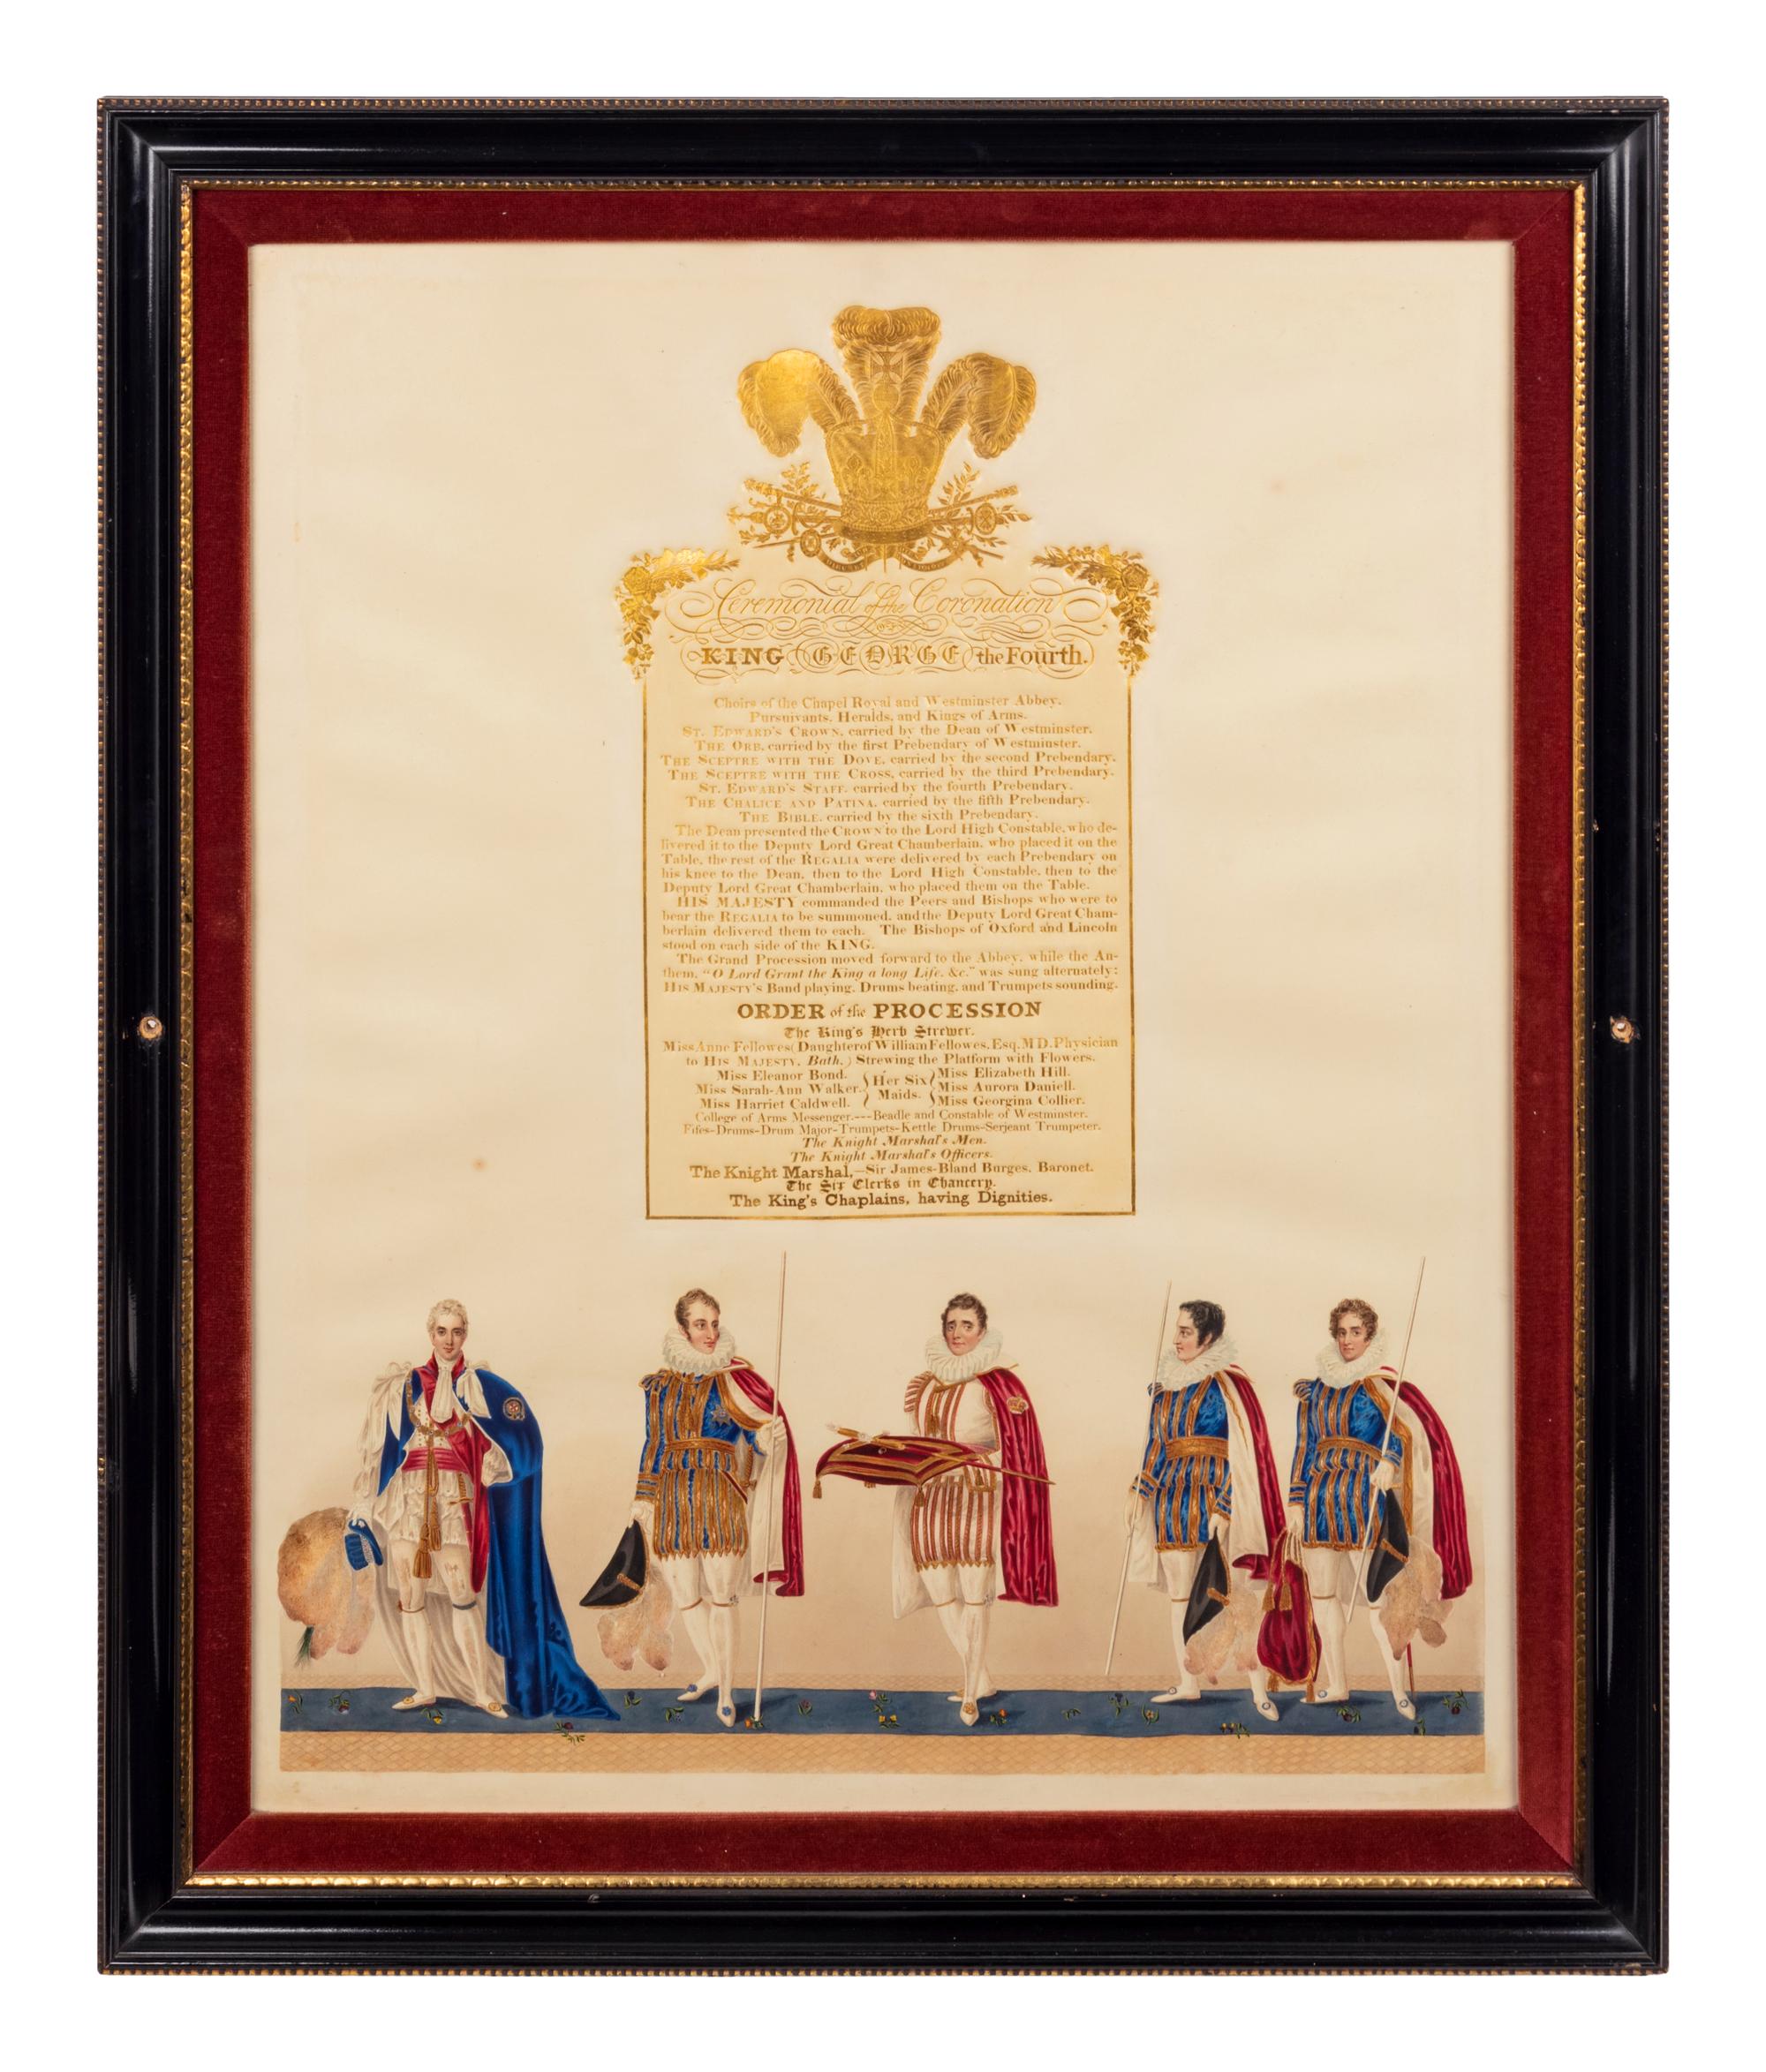 Ceremonial of the Coronation
OF
KING GEORGE the Fourth.
Choirs of the Chapel Royal and Westminster Abbey.
Pursuivants, Heralds, and Kings of Arms.
ST. EDWARD'S CROWN, carried by the Dean of Westminster.
THE ORB, carried by the first Prebendary of Westminster.
THE SCEPTRE WITH THE DOVE, carried by the second Prebendary.
THE SCEPTRE WITH THE CROSS, carried by the third Prebendary.
ST. EDWARD'S STAFF, carried by the fourth Prebendary.
THE CHALICE AND PATINA, carried by the fifth Prebendary.
THE BIBLE, carried by the sixth Prebendary.
The Dean presented the CROWN to the Lord High Constable, who de-
livered it to the Deputy Lord Great Chamberlain, who placed it on the
Table, the rest of the REGALIA were delivered by each Prebendary on
his knee to the Dean, then to the Lord High Constable, then to the
Deputy Lord Great Chamberlain, who placed them on the Table.
HIS MAJESTY commanded the Peers and Bishops who were to
bear the REGALIA to be summoned, and the Deputy Lord Great Cham-
berlain delivered them to each. The Bishops of Oxford and Lincoln
stood on each side of the KING.
The Grand Procession moved forward to the Abbey, while the An-
them, "O Lord Grant the King a long Life, &c." was sung alternately:
HIS MAJESTY'S Band playing, Drums beating, and Trumpets sounding.
ORDER of the PROCESSION
The King's Herb Strewer.
Miss Anne Fellowes (Daughter of William Fellowes, Esq. M D. Physician
to HIS MAJESTY, Bath.) Strewing the Platform with Flowers.
Miss Eleanor Bond. Miss Elizabeth Hill.
Miss Sarah-Ann Walker. Her Six Maids. Miss Aurora Daniell.
Miss Harriet Caldwell. Miss Georgina Collier.
College of Arms Messenger.---Beadle and Constable of Westminster.
Fifes-Drums-Drum Major-Trumpets-Kettle Drums-Serjeant Trumpeter.
The Knight Marshal's Men.
The Knight Marshal's Officers.
The Knight Marshal,—Sir James-Bland Burges, Baronet.
The Six Clerks in Chancery.
The King's Chaplains, having Dignities.